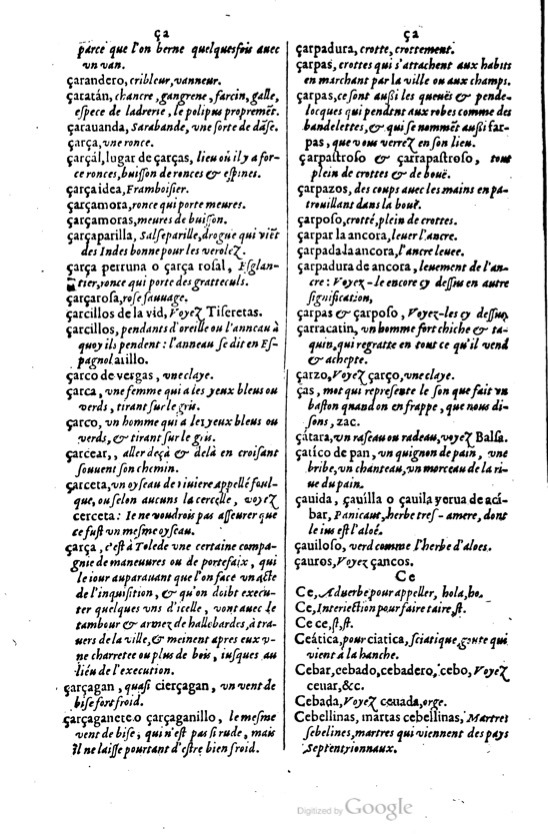 ça
parce que l'on berne quelquesfois auec
vn van.
çarandero, cribleur, vanneur.
çaratán, chancre, gangrene, farcin, galle,
espece de ladrerie, le polipus propremẽt.
çarauanda, Sarabande, vne sorte de dãse.
çarça, vne ronce.
çarçál, lugar de çarças, lieu où il y a for-
ce ronces, buisson de ronces & espines.
çarça idea, Framboisier.
çarçamora, ronce qui porte meures.
çarçamoras, meures de buisson.
çarçaparilla, Salseparille, drogue qui viẽt
des Indes bonne pour les verolez.
çarça perruna o çarça rosal, Esglan-
tier, ronce qui porte des gratteculs.
çarçarosa, rose sauuage.
çarcillos de la vid, Voyez Tiseretas.
çarcillos, pendants d'oreille ou l'anneau à
quoy ils pendent: l'anneau se dit en Es-
pagnol anillo.
çarco de vergas, vne claye.
çarca, vne femme qui a les yeux bleus ou
verds, tirant sur le gris.
çarco, vn homme qui a les yeux bleus ou
verds, & tirant sur le gris.
çarcear,, aller deçà & delà en croisant
souuent son chemin.
çarceta, vn oyseau de riuiere appellé foul-
que, ou selon aucuns la cercelle, voyez
cerceta: Ie ne voudrois pas asseurer que
ce fust vn mesme oyseau.
çarça, c'est à Tolede vne certaine compa-
gnie de maneuures ou de portefaix, qui
le iour auparauant que l'on face vn acte
de l'inquisition, & qu'on doibt execu-
ter quelques vns d'icelle, vont auec le
tambour & armez de hallebardes, à tra-
uers de la ville, & meinent apres eux v-
ne charretee ou plus de bois, iusques au
liéu de l'execution.
çarçagan, quasi cierçagan, vn vent de
bise fort froid.
çarçaganete o çarçaganillo, le mesme
vent de bise, qui n'est pas si rude, mais
il ne laisse pourtant d'estre bien froid.
ça
çarpadura, crotte, crottement.
çarpas, crottes qui s'attachent aux habits
en marchant par la ville ou aux champs.
çarpas, ce sont aussi les queuës & pende-
locques qui pendent aux robes comme des
bandelettes, & qui se nommẽt aussi far-
pas, que vous verrez en son lieu.
çarpastroso & çarrapastroso, tout
plein de crottes & de bouë.
çarpazos, des coups auec les mains en pa-
trouillant dans la bouë.
çarposo, crotté, plein de crottes.
çarpar la ancora, leuer l'ancre.
çarpada la ancora, l'ancre leuee.
çarpadura de ancora, leuement de l'an-
cre: Voyez-le encore cy dessus en autre
signification,
çarpas & çarposo, Voyez-les cy dessus.
çarracatin, vn homme fort chiche & ta-
quin, qui regratte en tout ce qu'il vend
& achepte.
çarzo, Voyez çarço, vne claye.
ças, mot qui represente le son que fait vn
baston quand on en frappe, que nous di-
sons, zac.
çátara, vn raseau ou radeau, voyez Balsa.
çatico de pan, vn quignon de pain, vne
bribe, vn chanteau, vn morceau de la ri-
ue du pain.
çauida, çauilla o çauila yerua de ací-
bar, Panicaut, herbe tres-amere, dont
le ius est l'aloé.
çauiloso, verd comme l'herbe d'aloes.
çauros, Voyez çancos.
Ce
Ce, Aduerbe pour appeller, hola, ho.
Ce, Interiection pour faire taire, st.
Ce ce, st, st.
Ceática, pour ciatica, sciatique, goute qui
vient à la hanche.
Cebar, cebado, cebadero, cebo, Voyez
ceuar, &c.
Cebada, Voyez ceuada, orge.
Cebellinas, martas cebellinas, Martres
sebelines, martres qui viennent des pays
Septentrionnaux.
Digitized by Google